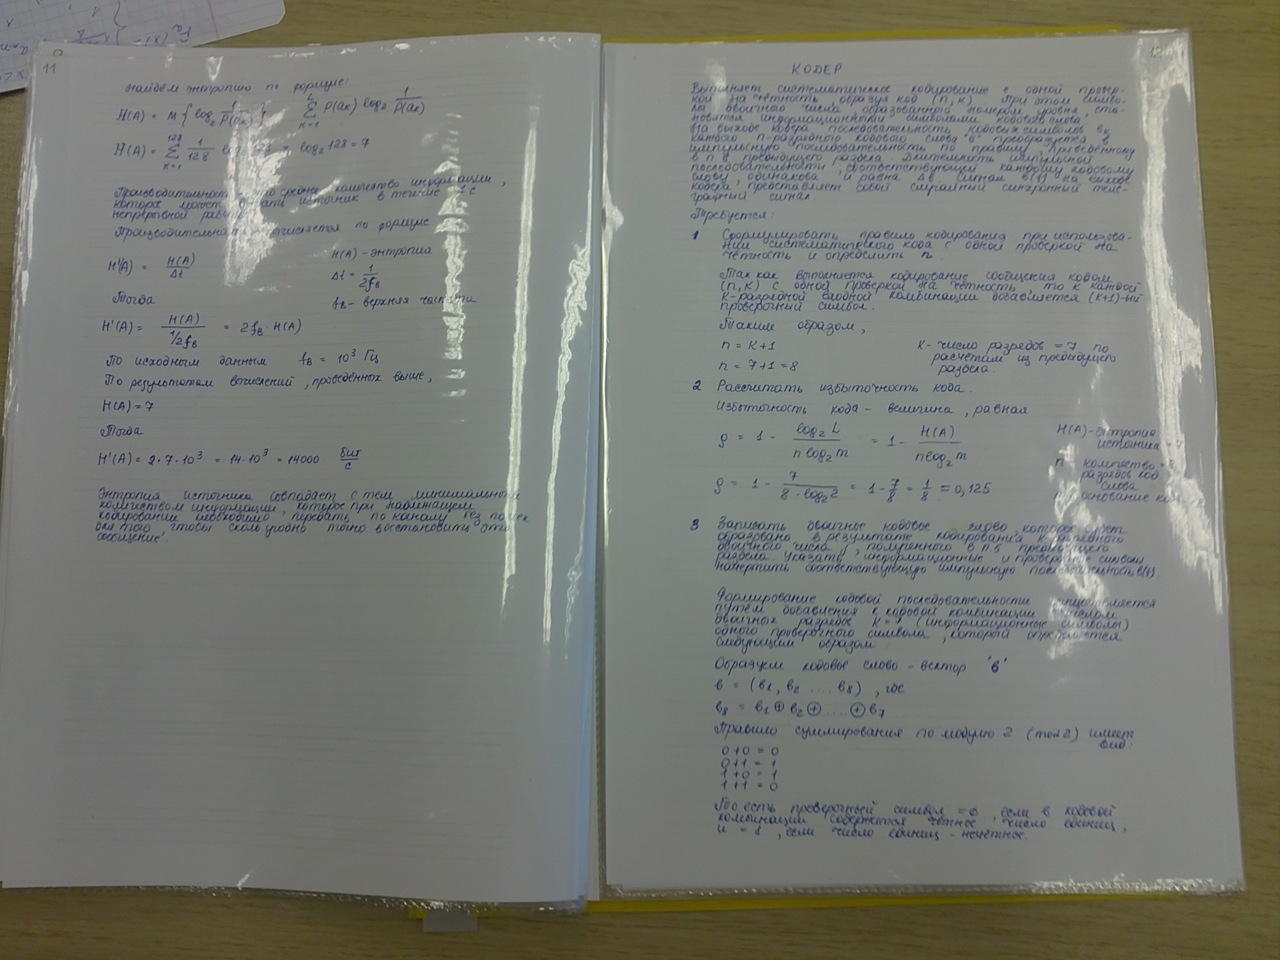 11
Найдём энтропию по формуле:
H(A) = M { log₂ 1/P(aк) } Σ P(aк) log₂ 1/P(aк)
H(A) = Σ 1/128 log₂ 128 = log₂ 128 = 7
Производительность - это среднее количество информации,
которое может выдать источник в течение
непрерывной работы
Производительность вычисляется по формуле
H'(A) = H(A)/Δt
H(A) - энтропия
Δt = 1/2fв
Тогда
fв - верхняя частота
H'(A) = H(A)/1/2fв = 2fв · H(A)
По исходным данным fв = 10³ Гц
По результатам вычислений, проведённых выше,
H(A) = 7
Тогда
H'(A) = 2·7·10³ = 14·10³ = 14000 бит/с
Энтропия источника совпадает с тем минимальным
количеством информации, которое при наилучшем
кодировании необходимо передать по каналу без помех
для того, чтобы сколь угодно точно восстановить это
сообщение.
12
КОДЕР
Выполняет систематическое кодирование с одной провер-
кой на чётность, образуя код (n, k). При этом симво-
лы двоичного числа, образованного номером уровня, ста-
новятся информационными символами кодового слова.
На выходе кодера последовательность кодовых символов вк
каждого n-разрядного кодового слова "в" преобразуется в
импульсную последовательность по правилу, приведённому
в п.8 предыдущего раздела. Длительность импульсной
последовательности, соответствующей каждому кодовому
слову, одинакова и равна Δt. Сигнал в(t) на выходе
кодера представляет собой случайный синхронный теле-
графный сигнал
Требуется:
1 Сформулировать правило кодирования при использова-
нии систематического кода с одной проверкой на
чётность и определить n.
Так как выполняется кодирование сообщения кодом
(n, k) с одной проверкой на чётность, то к каждой
k-разрядной входной комбинации добавляется (k+1)-ый
проверочный символ.
Таким образом,
n = k+1
n = 7+1 = 8
k - число разрядов = 7 по
расчётам из предыдущего
раздела.
2 Рассчитать избыточность кода.
Избыточность кода - величина, равная
ρ = 1 - log₂ L / n log₂ m = 1 - H(A) / n log₂ m
H(A) - энтропия
источника = 7
ρ = 1 - 7 / 8·log₂ 2 = 1 - 7/8 = 1/8 = 0,125
n количество
разрядов код.
слова
основание кода
3 Записать двоичное кодовое слово, которое будет
образовано в результате кодирования k-разрядного
двоичного числа, полученного в п.5 предыдущего
раздела. Указать информационные и проверочные символы
начертить соответствующую импульсную последовательность в(t).
Формирование кодовой последовательности осуществляется
путём добавления к кодовой комбинации с числом
двоичных разрядов k=7 (информационные символы)
одного проверочного символа, который определяется
следующим образом
Образуем кодовое слово - вектор "в"
в = (в1, в2 .... в8), где
в8 = в1 ⊕ в2 ⊕ .... ⊕ в7
Правило суммирования по модулю 2 (mod 2) имеет
вид:
0+0 = 0
0+1 = 1
1+0 = 1
1+1 = 0
То есть проверочный символ = 0, если в кодовой
комбинации содержится чётное число единиц,
и = 1, если число единиц - нечётное.